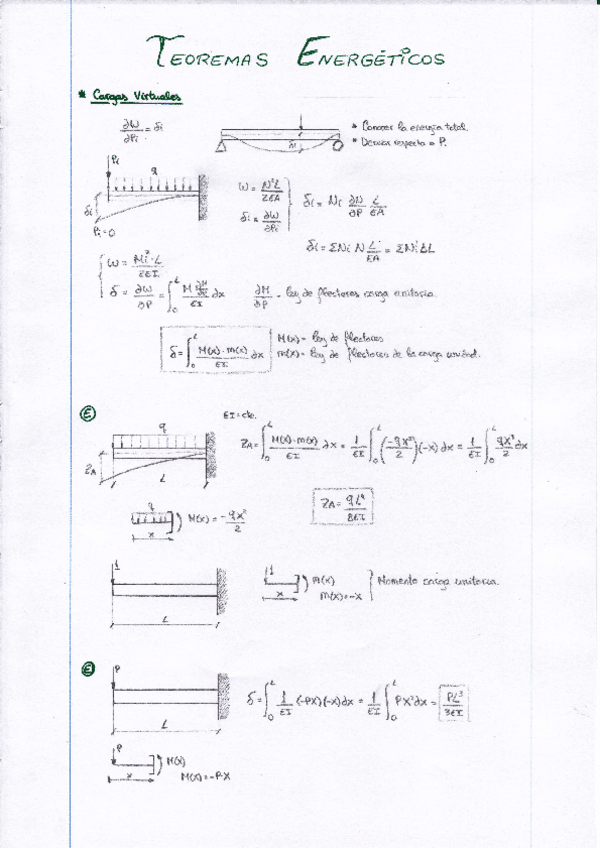 TEOREMAS ENERGÉTICOS
* Cargas Virtuales
∂W/∂Pi = δi
* Conocer la energía total.
* Derivar respecto a Pi
δi
Pi
q
δi
Pi=0
W = N²L/2EA
δi = ∂W/∂Pi
δi = Ni ∂N/∂P L/EA
δi = ΣNi N L/EA = ΣNi ΔL
W = Mi²·L/2EI
δ = ∂W/∂P = ∫₀ᴸ M ∂M/∂P /EI dx
∂M/∂P = ley de flectores carga unitaria.
δ = ∫₀ᴸ M(x)·m(x)/EI dx
M(x) = ley de flectores
m(x) = ley de flectores de la carga unidad.
E
EI = cte.
q
ZA
L
ZA = ∫₀ᴸ M(x)·m(x)/EI dx = 1/EI ∫₀ᴸ (-qx²/2)(-x)dx = 1/EI ∫₀ᴸ qx³/2 dx
ZA = qL⁴/8EI
q
x
M(x) = -qx²/2
1
L
1
x
m(x)
m(x)=-x
Momento carga unitaria.
E
P
L
δ = ∫₀ᴸ 1/EI (-Px)(-x)dx = 1/EI ∫₀ᴸ Px²dx = PL³/3EI
P
x
M(x)
M(x)=-P·x